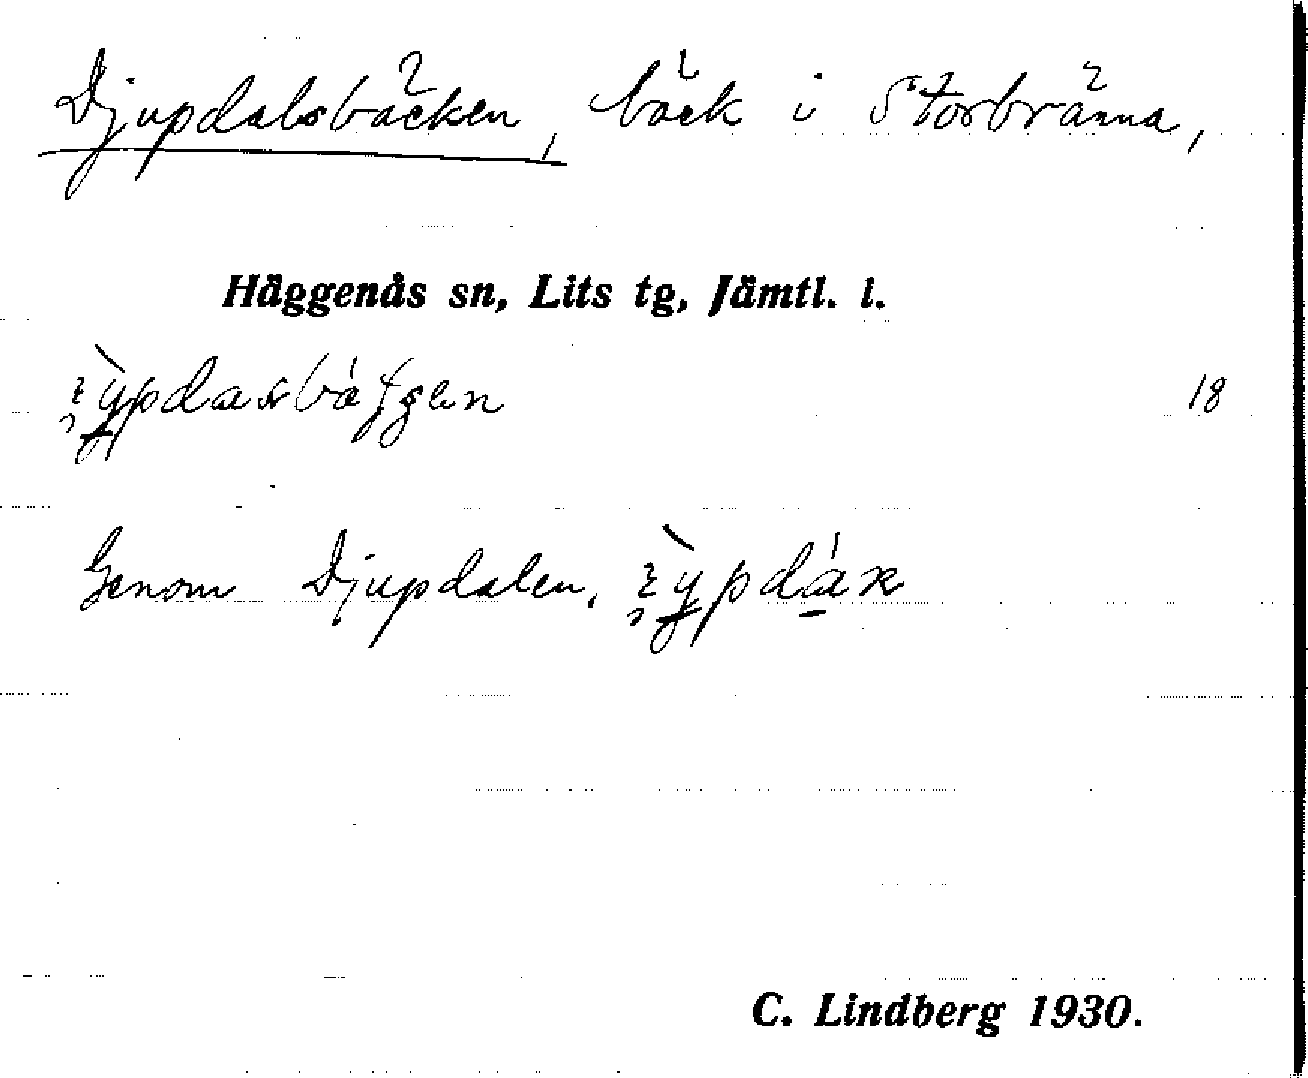 Djupdalsbäcken, bäck i Storbränna,
Häggenås sn, Lits tg, Jämtl. l.
18
Genom Djupdalen.
C. Lindberg 1930.